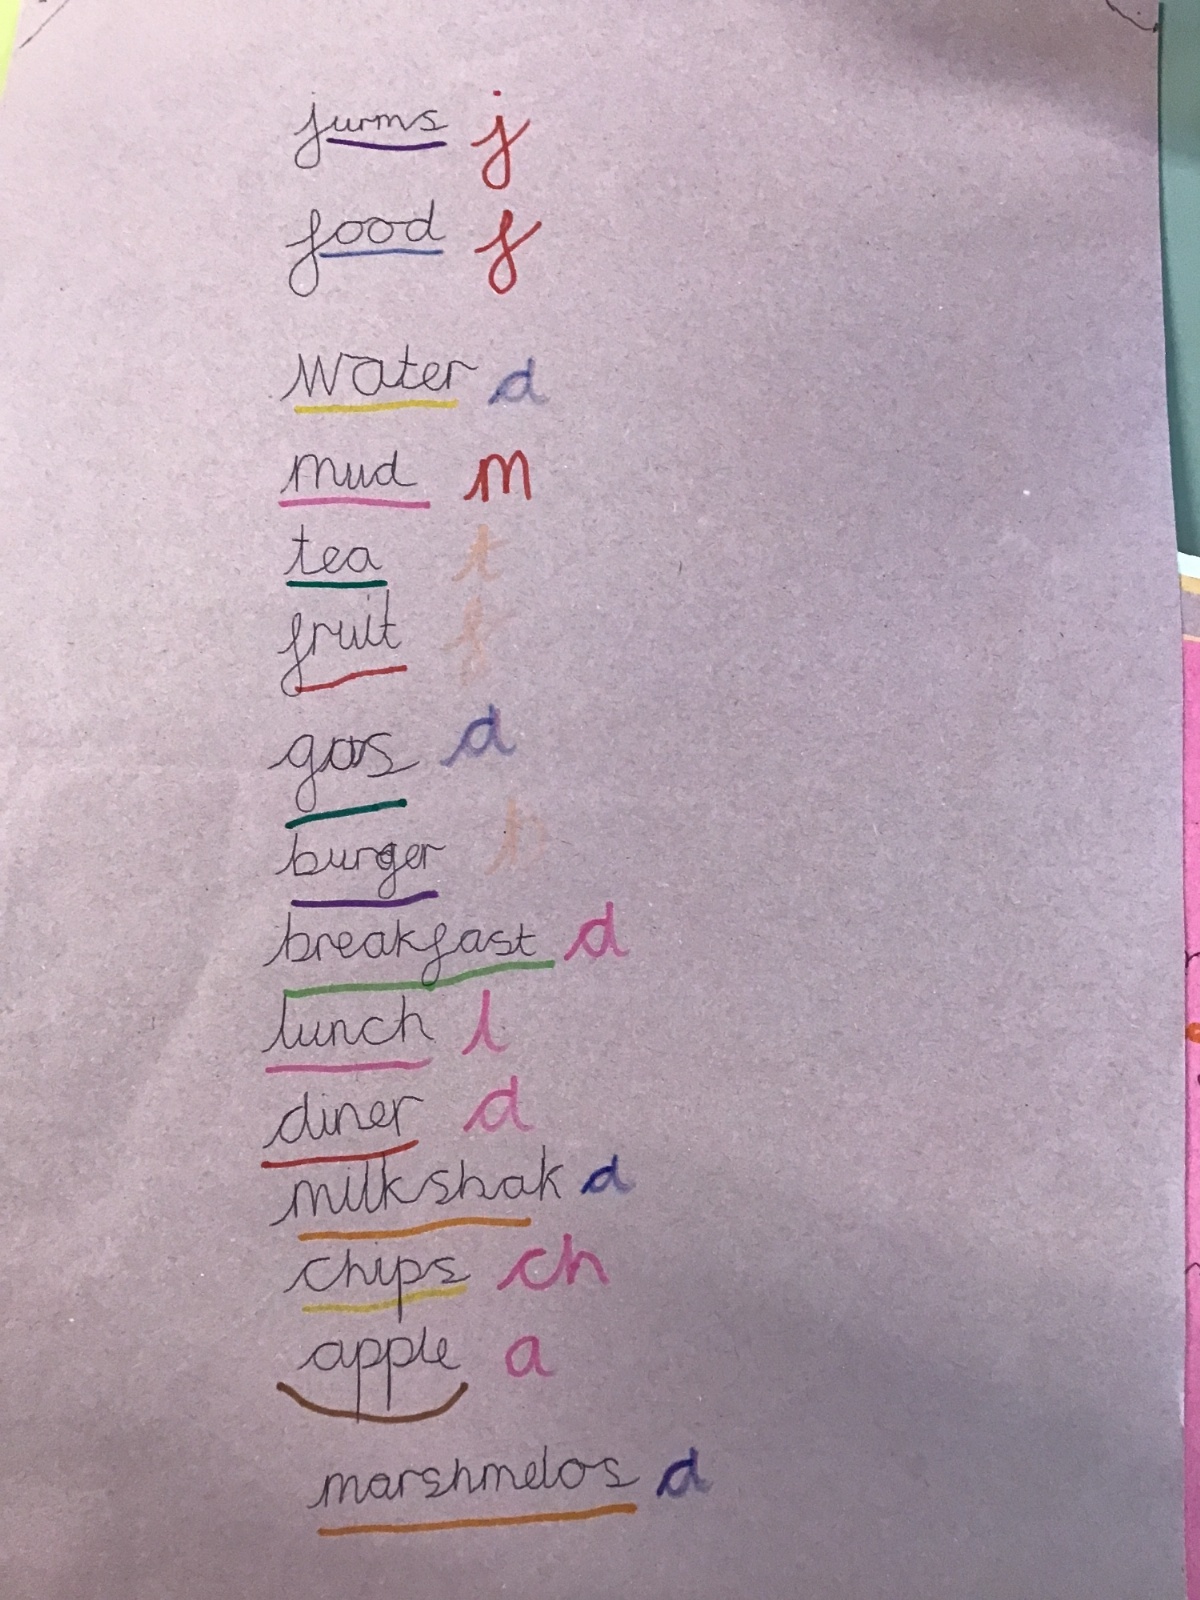 jurms j
food f
water d
mud m
tea t
fruit f
gas d
burger b
breakfast d
lunch l
diner d
milkshak d
chips ch
apple a
marshmelos d